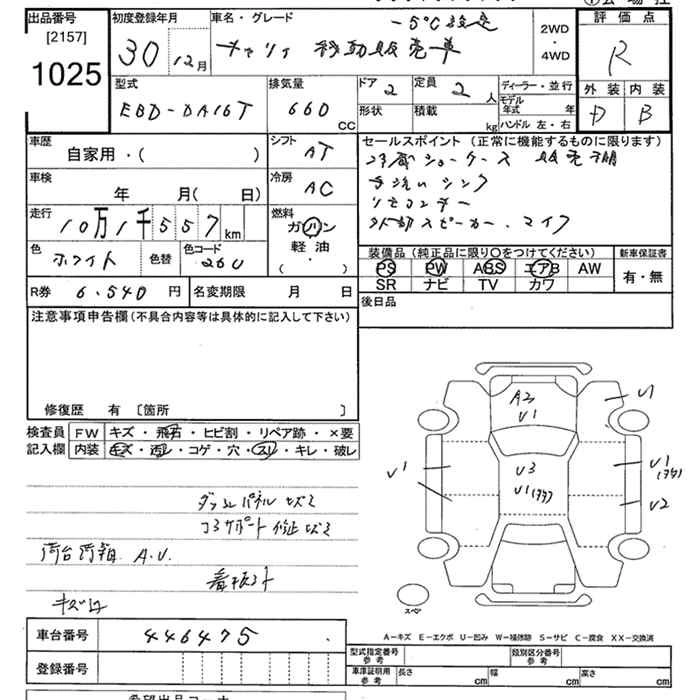 出品番号 初度登録年月 車名・グレード -5℃設定
[2157]
1025
30 12月 キャリィ 移動販売車
2WD
・
4WD
評価点
R
外装 内装
D B
型式 EBD-DA16T
排気量 660 CC
ドア 2 定員 2 人
形状 積載 kg
ディーラー・並行
モデル年式 年
ハンドル 左・右
車歴 自家用・( )
シフト AT
車検 年 月( 日)
冷房 AC
走行 10万1千557km
燃料 ガソリン
軽油・
( )
色 ホワイト 色替 色コード 26U
R券 6.540円 名変期限 月 日
セールスポイント(正常に機能するものに限ります)
冷蔵ショーケース 販売棚
手洗いシンク
リモコンキー
外部スピーカー.マイク
装備品(純正品に限り〇をつけてください) 新車保証書
PS PW ABS エアB AW
SR ナビ TV カワ
有・無
後日品
注意事項申告欄(不具合内容等は具体的に記入して下さい)
修復歴 有 〔箇所 〕
検査員記入欄
FW キズ・飛石・ヒビ割・リペア跡・×要
内装 キズ・汚レ・コゲ・穴・スリ・キレ・破レ
ダッシュパネル キズミ
コアサポート 修正キズミ
荷台荷箱 A.U.
看板
A2
U1
U1
U1
U3
U1(アリ)
U1
(アリ)
U2
スペア
A-キズ E-エクボ U-凹み W-補修跡 S-サビ C-腐食 XX-交換済
車台番号 446475
登録番号
型式指定番号 参考 類別区分番号 参考
車庫証明用 参考 長さ cm 幅 cm 高さ cm
希望出品コーナー